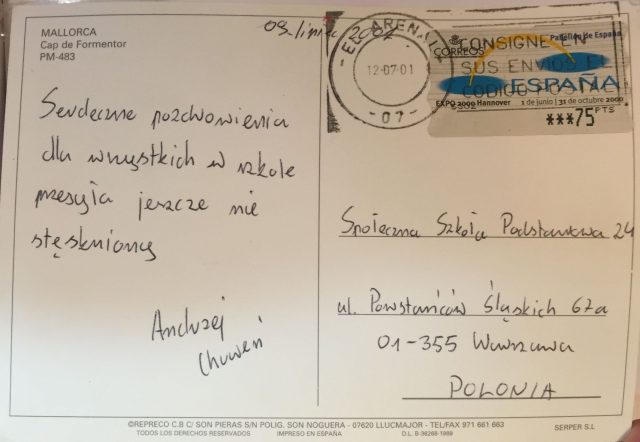 MALLORCA
Cap de Formentor
PM-483
09. lipiec 2001
Serdeczne pozdrowienia
dla wszystkich w szkole
przesyła jeszcze nie
stęskniony
Andrzej
EL ARENAL
12-07-01
-07-
CORREOS
CONSIGNE EN
SUS ENVIOS EL
CODIGO POSTAL
Pabellón de España
ESPAÑA
EXPO 2000 Hannover 1 de junio | 31 de octubre 2000
***75 PTS
Społeczna Szkoła Podstawowa 24
ul. Powstańców Śląskich 67a
01-355 Warszawa
POLONIA
©REPRECO C.B C/ SON PIERAS S/N POLIG. SON NOGUERA - 07620 LLUCMAJOR - TEL/FAX 971 661 663
TODOS LOS DERECHOS RESERVADOS IMPRESO EN ESPAÑA D.L. B-36268-1989
SERPER S.L